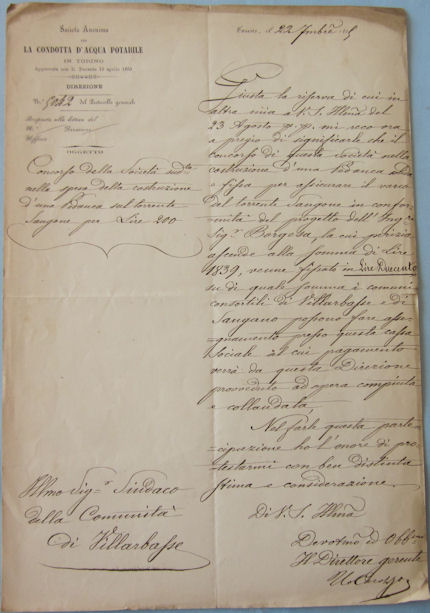 Società Anonima
PER
LA CONDOTTA D'ACQUA POTABILE
IN TORINO
DIREZIONE
N.° 5042 del Protocollo generale
Risposta alla lettera del
N.° Divisione
Ufficio
OGGETTO
Concorso della Società sudta
nella spesa della costruzione
d'una Pedanca sul torrente
Sangone per Lire 200
Illmo Sigr Sindaco
della Comunità
di Villarbasse
Torino, il 22 9mbre
Giusta la riserva di cui in
altra mia a V. S. Illma del
23 Agosto p.p. mi reco ora
a pregio di significarle che il
concorso di questa Società nella
costruzione d'una Pedanca
fissa per assicurare il varco
del torrente Sangone in confor-
mità del progetto dell'Ingre
Sigr Borgesa, la cui perizia
ascende alla somma di Lire
1839, venne fissato in Lire Duecento
su di quale somma i comuni
consortili di Villarbasse e di
Sangano possono fare asse-
=gnamento presso questa cassa
Sociale al cui pagamento
verrà da questa Direzione
provveduto ad opera compiuta
e collaudata,
Nel farle questa parte-
=cipazione ho l'onore di pro-
=testarmi con ben distinta
stima e considerazione.
Di V. S. Illma
Devotmo ed Obbmo
Il Direttore gerente